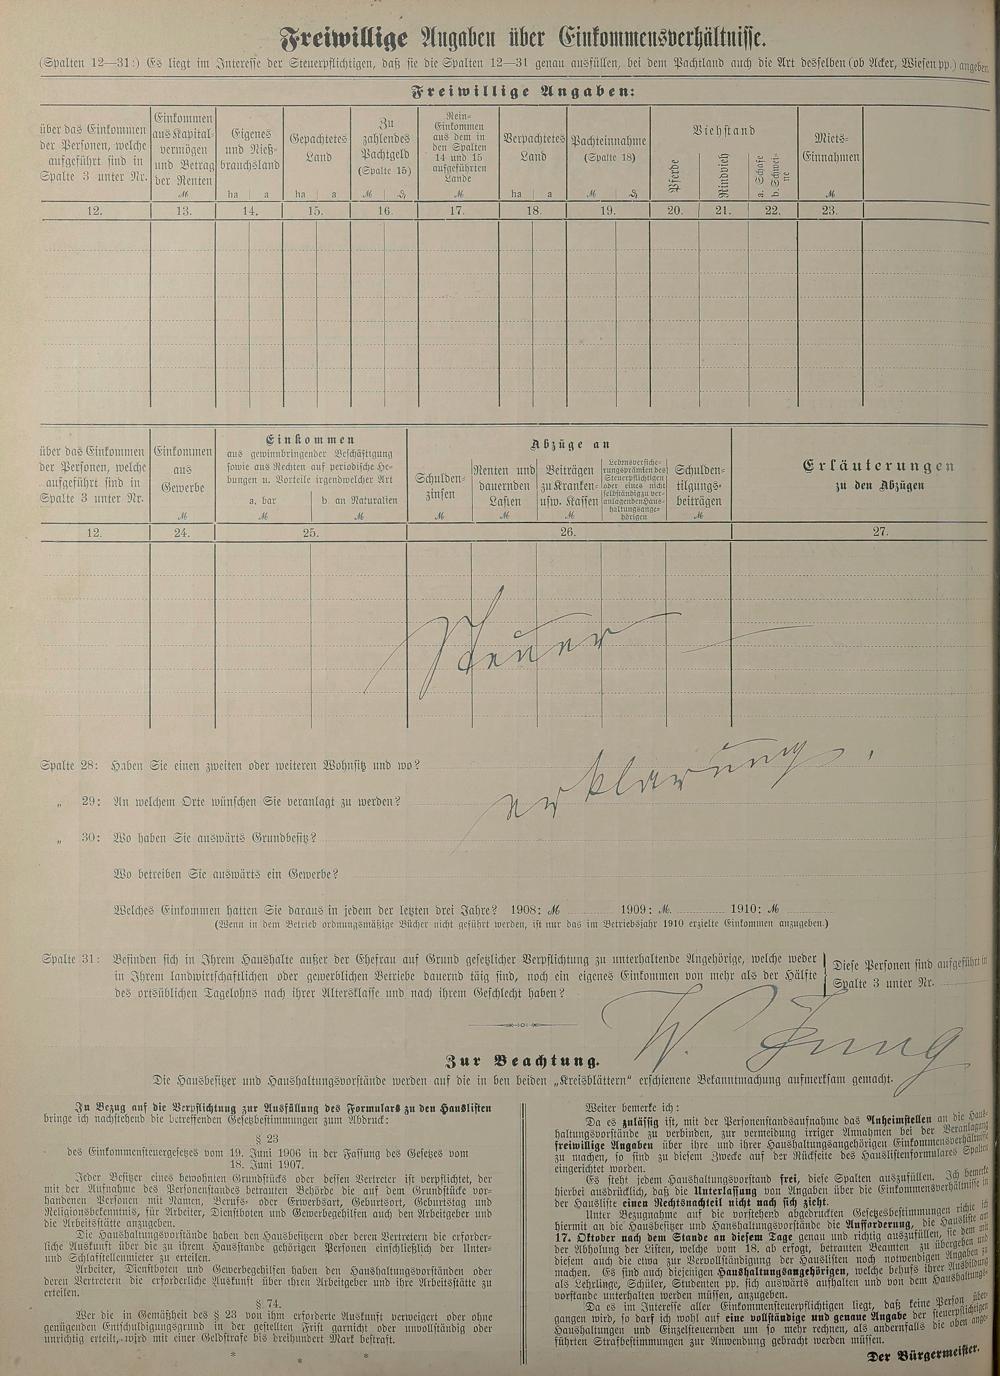 Freiwillige Angaben über Einkommensverhältnisse.
(Spalten 12—31:) Es liegt im Interesse der Steuerpflichtigen, daß sie die Spalten 12—31 genau ausfüllen, bei dem Pachtland auch die Art desselben (ob Acker, Wiesen pp.) angeben.
Freiwillige Angaben:
über das Einkommen der Personen, welche aufgeführt sind in Spalte 3 unter Nr.
Einkommen aus Kapitalvermögen und Betrag der Renten M
Eigenes und Nießbrauchsland ha a
Gepachtetes Land ha a
Zu zahlendes Pachtgeld (Spalte 15) M ₰
Rein-Einkommen aus dem in den Spalten 14 und 15 aufgeführten Lande M
Verpachtetes Land ha a
Pachteinnahme (Spalte 18) M ₰
Viehstand
Pferde
Rindvieh
a. Schafe b. Schweine
Miets-Einnahmen M
12. 13. 14. 15. 16. 17. 18. 19. 20. 21. 22. 23.
über das Einkommen der Personen, welche aufgeführt sind in Spalte 3 unter Nr.
Einkommen aus Gewerbe M
Einkommen
aus gewinnbringender Beschäftigung
sowie aus Rechten auf periodische Hebungen u. Vorteile irgendwelcher Art
a. bar M
b. an Naturalien M
Abzüge an
Schuldenzinsen M
Renten und dauernden Lasten M
Beiträgen zu Kranken- usw. Kassen M
Lebensversicherungsprämien des Steuerpflichtigen oder eines nicht selbständig zu veranlagenden Haushaltungsangehörigen
Schuldentilgungsbeiträgen M
Erläuterungen
zu den Abzügen
12. 24. 25. 26. 27.
Steuer —
erklärung.
Spalte 28: Haben Sie einen zweiten oder weiteren Wohnsitz und wo?
„ 29: An welchem Orte wünschen Sie veranlagt zu werden?
„ 30: Wo haben Sie auswärts Grundbesitz?
Wo betreiben Sie auswärts ein Gewerbe?
Welches Einkommen hatten Sie daraus in jedem der letzten drei Jahre? 1908: M 1909: M. 1910: M
(Wenn in dem Betrieb ordnungsmäßige Bücher nicht geführt werden, ist nur das im Betriebsjahr 1910 erzielte Einkommen anzugeben.)
Spalte 31: Befinden sich in Ihrem Haushalte außer der Ehefrau auf Grund gesetzlicher Verpflichtung zu unterhaltende Angehörige, welche weder
in Ihrem landwirtschaftlichen oder gewerblichen Betriebe dauernd täig sind, noch ein eigenes Einkommen von mehr als der Hälfte
des ortsüblichen Tagelohns nach ihrer Altersklasse und nach ihrem Geschlecht haben?
Diese Personen sind aufgeführt in
Spalte 3 unter Nr.
W. Jung
Zur Beachtung.
Die Hausbesitzer und Haushaltungsvorstände werden auf die in den beiden „Kreisblättern“ erschienene Bekanntmachung aufmerksam gemacht.
In Bezug auf die Verpflichtung zur Ausfüllung des Formulars zu den Hauslisten
bringe ich nachstehend die betreffenden Gesetzbestimmungen zum Abdruck:
§ 23
des Einkommensteuergesetzes vom 19. Juni 1906 in der Fassung des Gesetzes vom
18. Juni 1907.
Jeder Besitzer eines bewohnten Grundstücks oder dessen Vertreter ist verpflichtet, der
mit der Aufnahme des Personenstandes betrauten Behörde die auf dem Grundstücke vor-
handenen Personen mit Namen, Berufs- oder Erwerbsart, Geburtsort, Geburtstag und
Religionsbekenntnis, für Arbeiter, Dienstboten und Gewerbegehilfen auch den Arbeitgeber und
die Arbeitsstätte anzugeben.
Die Haushaltungsvorstände haben den Hausbesitzern oder deren Vertretern die erforder-
liche Auskunft über die zu ihrem Hausstande gehörigen Personen einschließlich der Unter-
und Schlafstellenmieter zu erteilen.
Arbeiter, Dienstboten und Gewerbegehilfen haben den Haushaltungsvorständen oder
deren Vertretern die erforderliche Auskunft über ihren Arbeitgeber und ihre Arbeitsstätte zu
erteilen.
§ 74.
Wer die in Gemäßheit des § 23 von ihm erforderte Auskunft verweigert oder ohne
genügenden Entschuldigungsgrund in der gestellten Frist garnicht oder unvollständig oder
unrichtig erteilt, wird mit einer Geldstrafe bis dreihundert Mark bestraft.
* * *
Weiter bemerke ich:
Da es zulässig ist, mit der Personenstandsaufnahme das Anheimstellen an die Haus-
haltungsvorstände zu verbinden, zur vermeidung irriger Annahmen bei der Veranlagung
freiwillige Angaben über ihre und ihrer Haushaltungsangehörigen Einkommensverhältnisse
zu machen, so sind zu diesem Zwecke auf der Rückseite des Hauslistenformulares Spalten
eingerichtet worden.
Es steht jedem Haushaltungsvorstand frei, diese Spalten auszufüllen. Ich bemerke
hierbei ausdrücklich, daß die Unterlassung von Angaben über die Einkommensverhältnisse in
der Hausliste einen Rechtsnachteil nicht nach sich zieht.
Unter Bezugnahme auf die vorstehend abgedruckten Gesetzesbestimmungen richte ich
hiermit an die Hausbesitzer und Haushaltungsvorstände die Aufforderung, die Hausliste am
17. Oktober nach dem Stande an diesem Tage genau und richtig auszufüllen, sie dem mit
der Abholung der Listen, welche vom 18. ab erfogt, betrauten Beamten zu übergeben und
diesem auch die etwa zur Vervollständigung der Hauslisten noch notwendigen Angaben zu
machen. Es sind auch diejenigen Haushaltungsangehörigen, welche behufs ihrer Ausbildung
als Lehrlinge, Schüler, Studenten pp. sich auswärts aufhalten und von dem Haushaltungs-
vorstande unterhalten werden müssen, anzugeben.
Da es im Interesse aller Einkommensteuerpflichtigen liegt, daß keine Person über-
gangen wird, so darf ich wohl auf eine vollständige und genaue Angabe der steuerpflichtigen
Haushaltungen und Einzelsteuernden um so mehr rechnen, als andernfalls die oben ange-
führten Strafbestimmungen zur Anwendung gebracht werden müssen.
Der Bürgermeister.